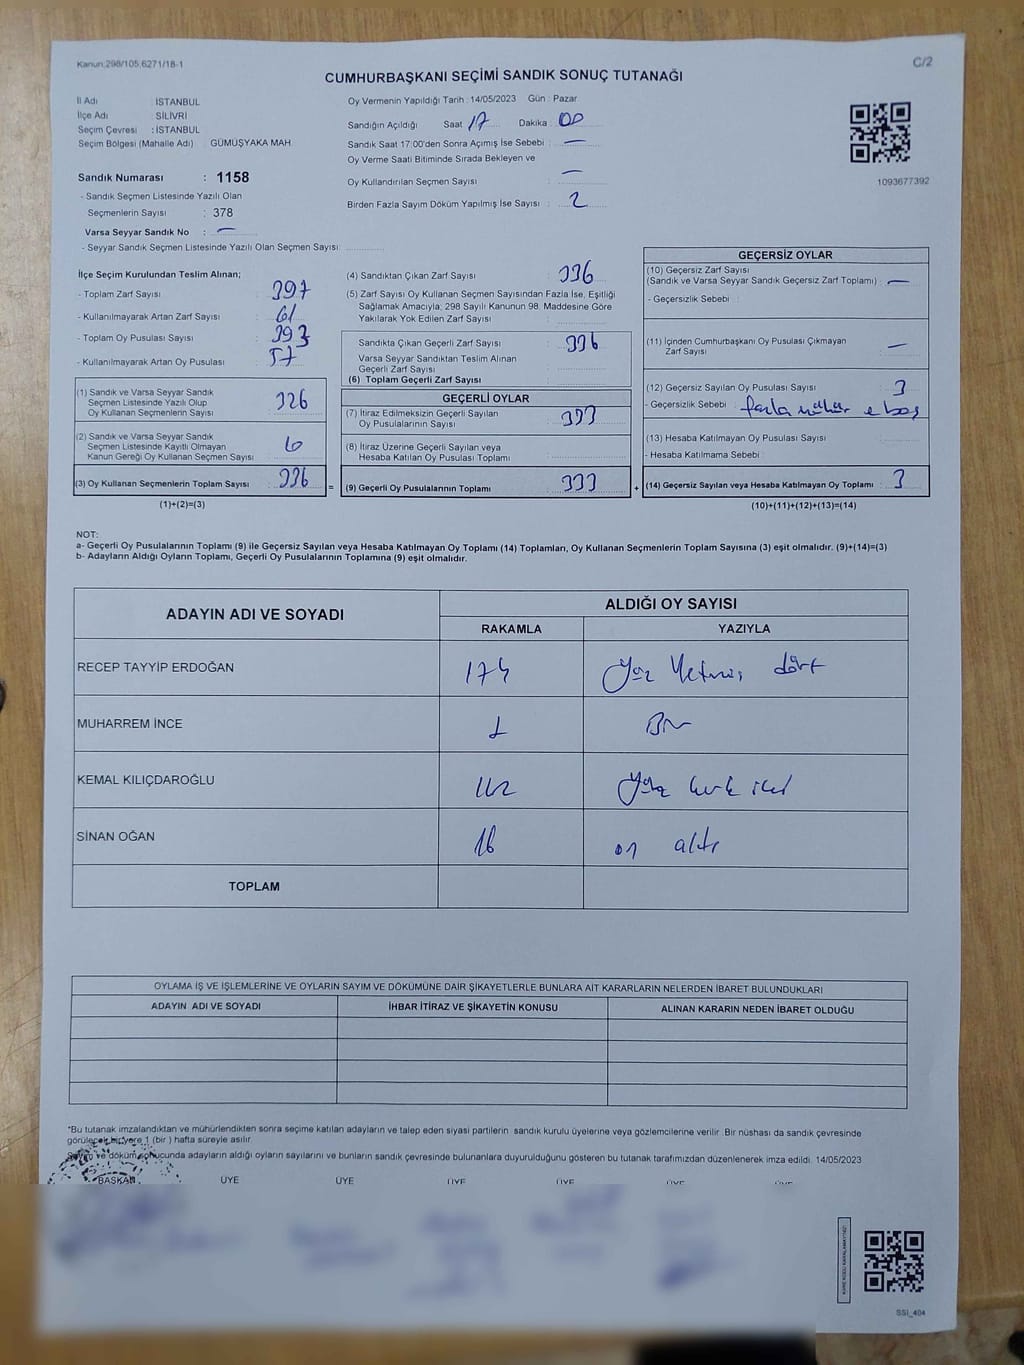 Kanun:298/105,6271/18-1
C/2
CUMHURBAŞKANI SEÇİMİ SANDIK SONUÇ TUTANAĞI
İl Adı İSTANBUL
İlçe Adı SİLİVRİ
Seçim Çevresi : İSTANBUL
Seçim Bölgesi (Mahalle Adı) GÜMÜŞYAKA MAH.
Sandık Numarası : 1158
- Sandık Seçmen Listesinde Yazılı Olan
Seçmenlerin Sayısı : 378
Varsa Seyyar Sandık No : —
- Seyyar Sandık Seçmen Listesinde Yazılı Olan Seçmen Sayısı:
Oy Vermenin Yapıldığı Tarih : 14/05/2023 Gün : Pazar
Sandığın Açıldığı Saat 17 Dakika : 00
Sandık Saat 17:00'den Sonra Açılmış İse Sebebi : —
Oy Verme Saati Bitiminde Sırada Bekleyen ve
Oy Kullandırılan Seçmen Sayısı : —
Birden Fazla Sayım Döküm Yapılmış İse Sayısı : 2
1093677392
İlçe Seçim Kurulundan Teslim Alınan;
- Toplam Zarf Sayısı : 397
- Kullanılmayarak Artan Zarf Sayısı : 61
- Toplam Oy Pusulası Sayısı : 393
- Kullanılmayarak Artan Oy Pusulası : 57
(1) Sandık ve Varsa Seyyar Sandık
Seçmen Listesinde Yazılı Olup
Oy Kullanan Seçmenlerin Sayısı : 326
(2) Sandık ve Varsa Seyyar Sandık
Seçmen Listesinde Kayıtlı Olmayan
Kanun Gereği Oy Kullanan Seçmen Sayısı :
(3) Oy Kullanan Seçmenlerin Toplam Sayısı : 336
(1)+(2)=(3)
=
(4) Sandıktan Çıkan Zarf Sayısı : 336
(5) Zarf Sayısı Oy Kullanan Seçmen Sayısından Fazla İse, Eşitliği
Sağlamak Amacıyla; 298 Sayılı Kanunun 98. Maddesine Göre
Yakılarak Yok Edilen Zarf Sayısı :
Sandıkta Çıkan Geçerli Zarf Sayısı : 336
Varsa Seyyar Sandıktan Teslim Alınan
Geçerli Zarf Sayısı
(6) Toplam Geçerli Zarf Sayısı
GEÇERLİ OYLAR
(7) İtiraz Edilmeksizin Geçerli Sayılan
Oy Pusulalarının Sayısı : 333
(8) İtiraz Üzerine Geçerli Sayılan veya
Hesaba Katılan Oy Pusulası Toplamı
(9) Geçerli Oy Pusulalarının Toplamı : 333
+
GEÇERSİZ OYLAR
(10) Geçersiz Zarf Sayısı
(Sandık ve Varsa Seyyar Sandık Geçersiz Zarf Toplamı) : —
- Geçersizlik Sebebi :
(11) İçinden Cumhurbaşkanı Oy Pusulası Çıkmayan
Zarf Sayısı : —
(12) Geçersiz Sayılan Oy Pusulası Sayısı : 3
- Geçersizlik Sebebi : fazla mühür boş
(13) Hesaba Katılmayan Oy Pusulası Sayısı
- Hesaba Katılmama Sebebi :
(14) Geçersiz Sayılan veya Hesaba Katılmayan Oy Toplamı : 3
(10)+(11)+(12)+(13)=(14)
NOT:
a- Geçerli Oy Pusulalarının Toplamı (9) ile Geçersiz Sayılan veya Hesaba Katılmayan Oy Toplamı (14) Toplamları, Oy Kullanan Seçmenlerin Toplam Sayısına (3) eşit olmalıdır. (9)+(14)=(3)
b- Adayların Aldığı Oyların Toplamı, Geçerli Oy Pusulalarının Toplamına (9) eşit olmalıdır.
ADAYIN ADI VE SOYADI
ALDIĞI OY SAYISI
RAKAMLA YAZIYLA
RECEP TAYYİP ERDOĞAN 174 Yüz Yetmiş dört
MUHARREM İNCE 1 Bir
KEMAL KILIÇDAROĞLU 142 Yüz kırk iki
SİNAN OĞAN 16 on altı
TOPLAM
OYLAMA İŞ VE İŞLEMLERİNE VE OYLARIN SAYIM VE DÖKÜMÜNE DAİR ŞİKAYETLERLE BUNLARA AİT KARARLARIN NELERDEN İBARET BULUNDUKLARI
ADAYIN ADI VE SOYADI İHBAR İTİRAZ VE ŞİKAYETİN KONUSU ALINAN KARARIN NEDEN İBARET OLDUĞU
*Bu tutanak imzalandıktan ve mühürlendikten sonra seçime katılan adayların ve talep eden siyasi partilerin sandık kurulu üyelerine veya gözlemcilerine verilir. Bir nüshası da sandık çevresinde
görülecek bir yere 1 (bir ) hafta süreyle asılır.
Sayım ve döküm sonucunda adayların aldığı oyların sayılarını ve bunların sandık çevresinde bulunanlara duyurulduğunu gösteren bu tutanak tarafımızdan düzenlenerek imza edildi. 14/05/2023
BAŞKAN ÜYE ÜYE ÜYE ÜYE ÜYE ÜYE
KARE KODU KARALAMAYINIZ!
SSİ_404